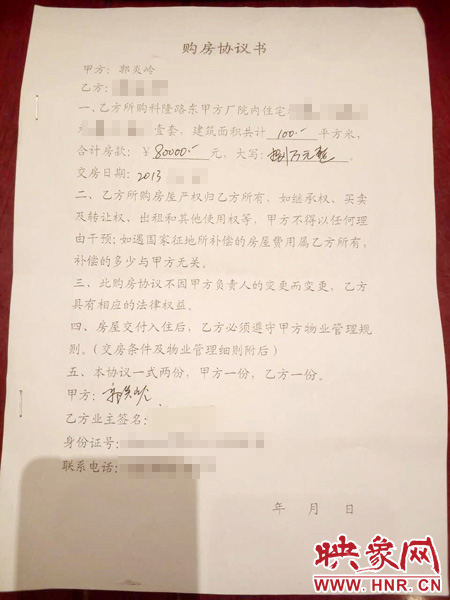 购房协议书
甲方：郭炎岭
乙方：
一、乙方所购科隆路东甲方厂院内住宅
壹套，建筑面积共计 100.- 平方米，
合计房款：￥80000.- 元，大写：捌万元整。
交房日期：2013
二、乙方所购房屋产权归乙方所有，如继承权、买卖
及转让权、出租和其他使用权等，甲方不得以任何理
由干预；如遇国家征地所补偿的房屋费用属乙方所有，
补偿的多少与甲方无关。
三、此购房协议不因甲方负责人的变更而变更，乙方
具有相应的法律权益。
四、房屋交付入住后，乙方必须遵守甲方物业管理规
则。（交房条件及物业管理细则附后）
五、本协议一式两份，甲方一份，乙方一份。
甲方：郭炎岭
乙方业主签名：
身份证号：
联系电话：
年 月 日
映象网
WWW.HNR.CN